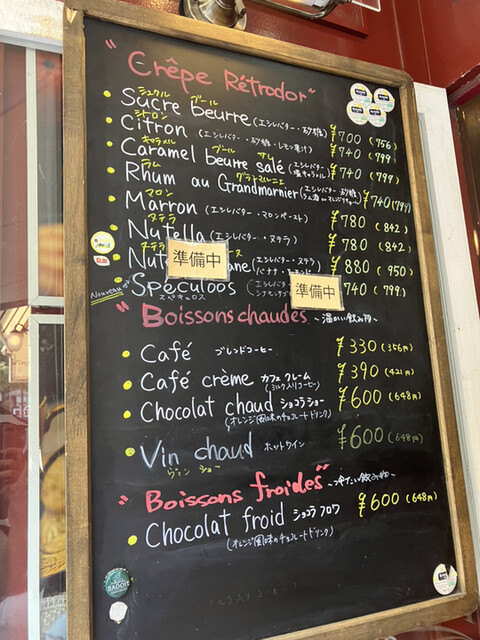 "Crêpe Rétrodor"
シュクル ブール
Sucre Beurre (エシレバター・砂糖) ¥700 (756
シトロン
Citron (エシレバター・砂糖・レモン果汁) ¥740 (799
キャラメル ブール サレ
Caramel beurre salé (エシレバター 塩キャラメル ¥740 (799)
ラム グランマルニエ
Rhum au Grandmarnier (エシレバター・砂糖 ¥740(799)
マロン
Marron (エシレバター・マロンペースト) ¥780 (842
Nutella (エシレバター・ヌテラ) ¥780 (842)
Nut 準備中 ane (エシレバター・ヌテラ バナナ ¥880 (950
Nouveau Spéculoos (エシレ 準備中 740 (799.
スペキュロス シナモン
"Boissons chaudes ~温かい飲み物~
Café ブレンドコーヒー ¥330 (356円)
Café crème カフェ クレーム (ミルク入りコーヒー) ¥390 (421円)
Chocolat chaud ショコラ ショー ¥600 (648円)
(オレンジ風味のチョコレートドリンク)
Vin chaud ホットワイン ¥600 (648円)
ヴァン ショー
"Boissons froides" ~冷たい飲み物~
Chocolat froid ショコラ フロワ ¥600 (648円)
(オレンジ風味のチョコレートドリンク)